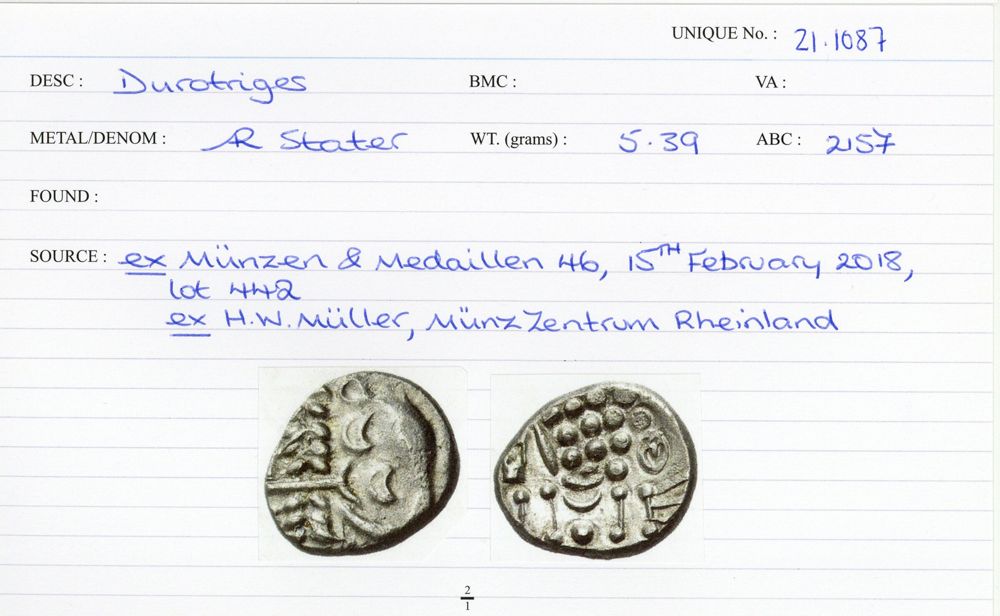 UNIQUE No. : 21.1087
DESC : Durotriges BMC : VA :
METAL/DENOM : AR Stater WT. (grams) : 5.39 ABC : 2157
FOUND :
SOURCE : ex Münzen & Medaillen 46, 15TH February 2018,
lot 442
ex H.W. Müller, Münz Zentrum Rheinland
2
1